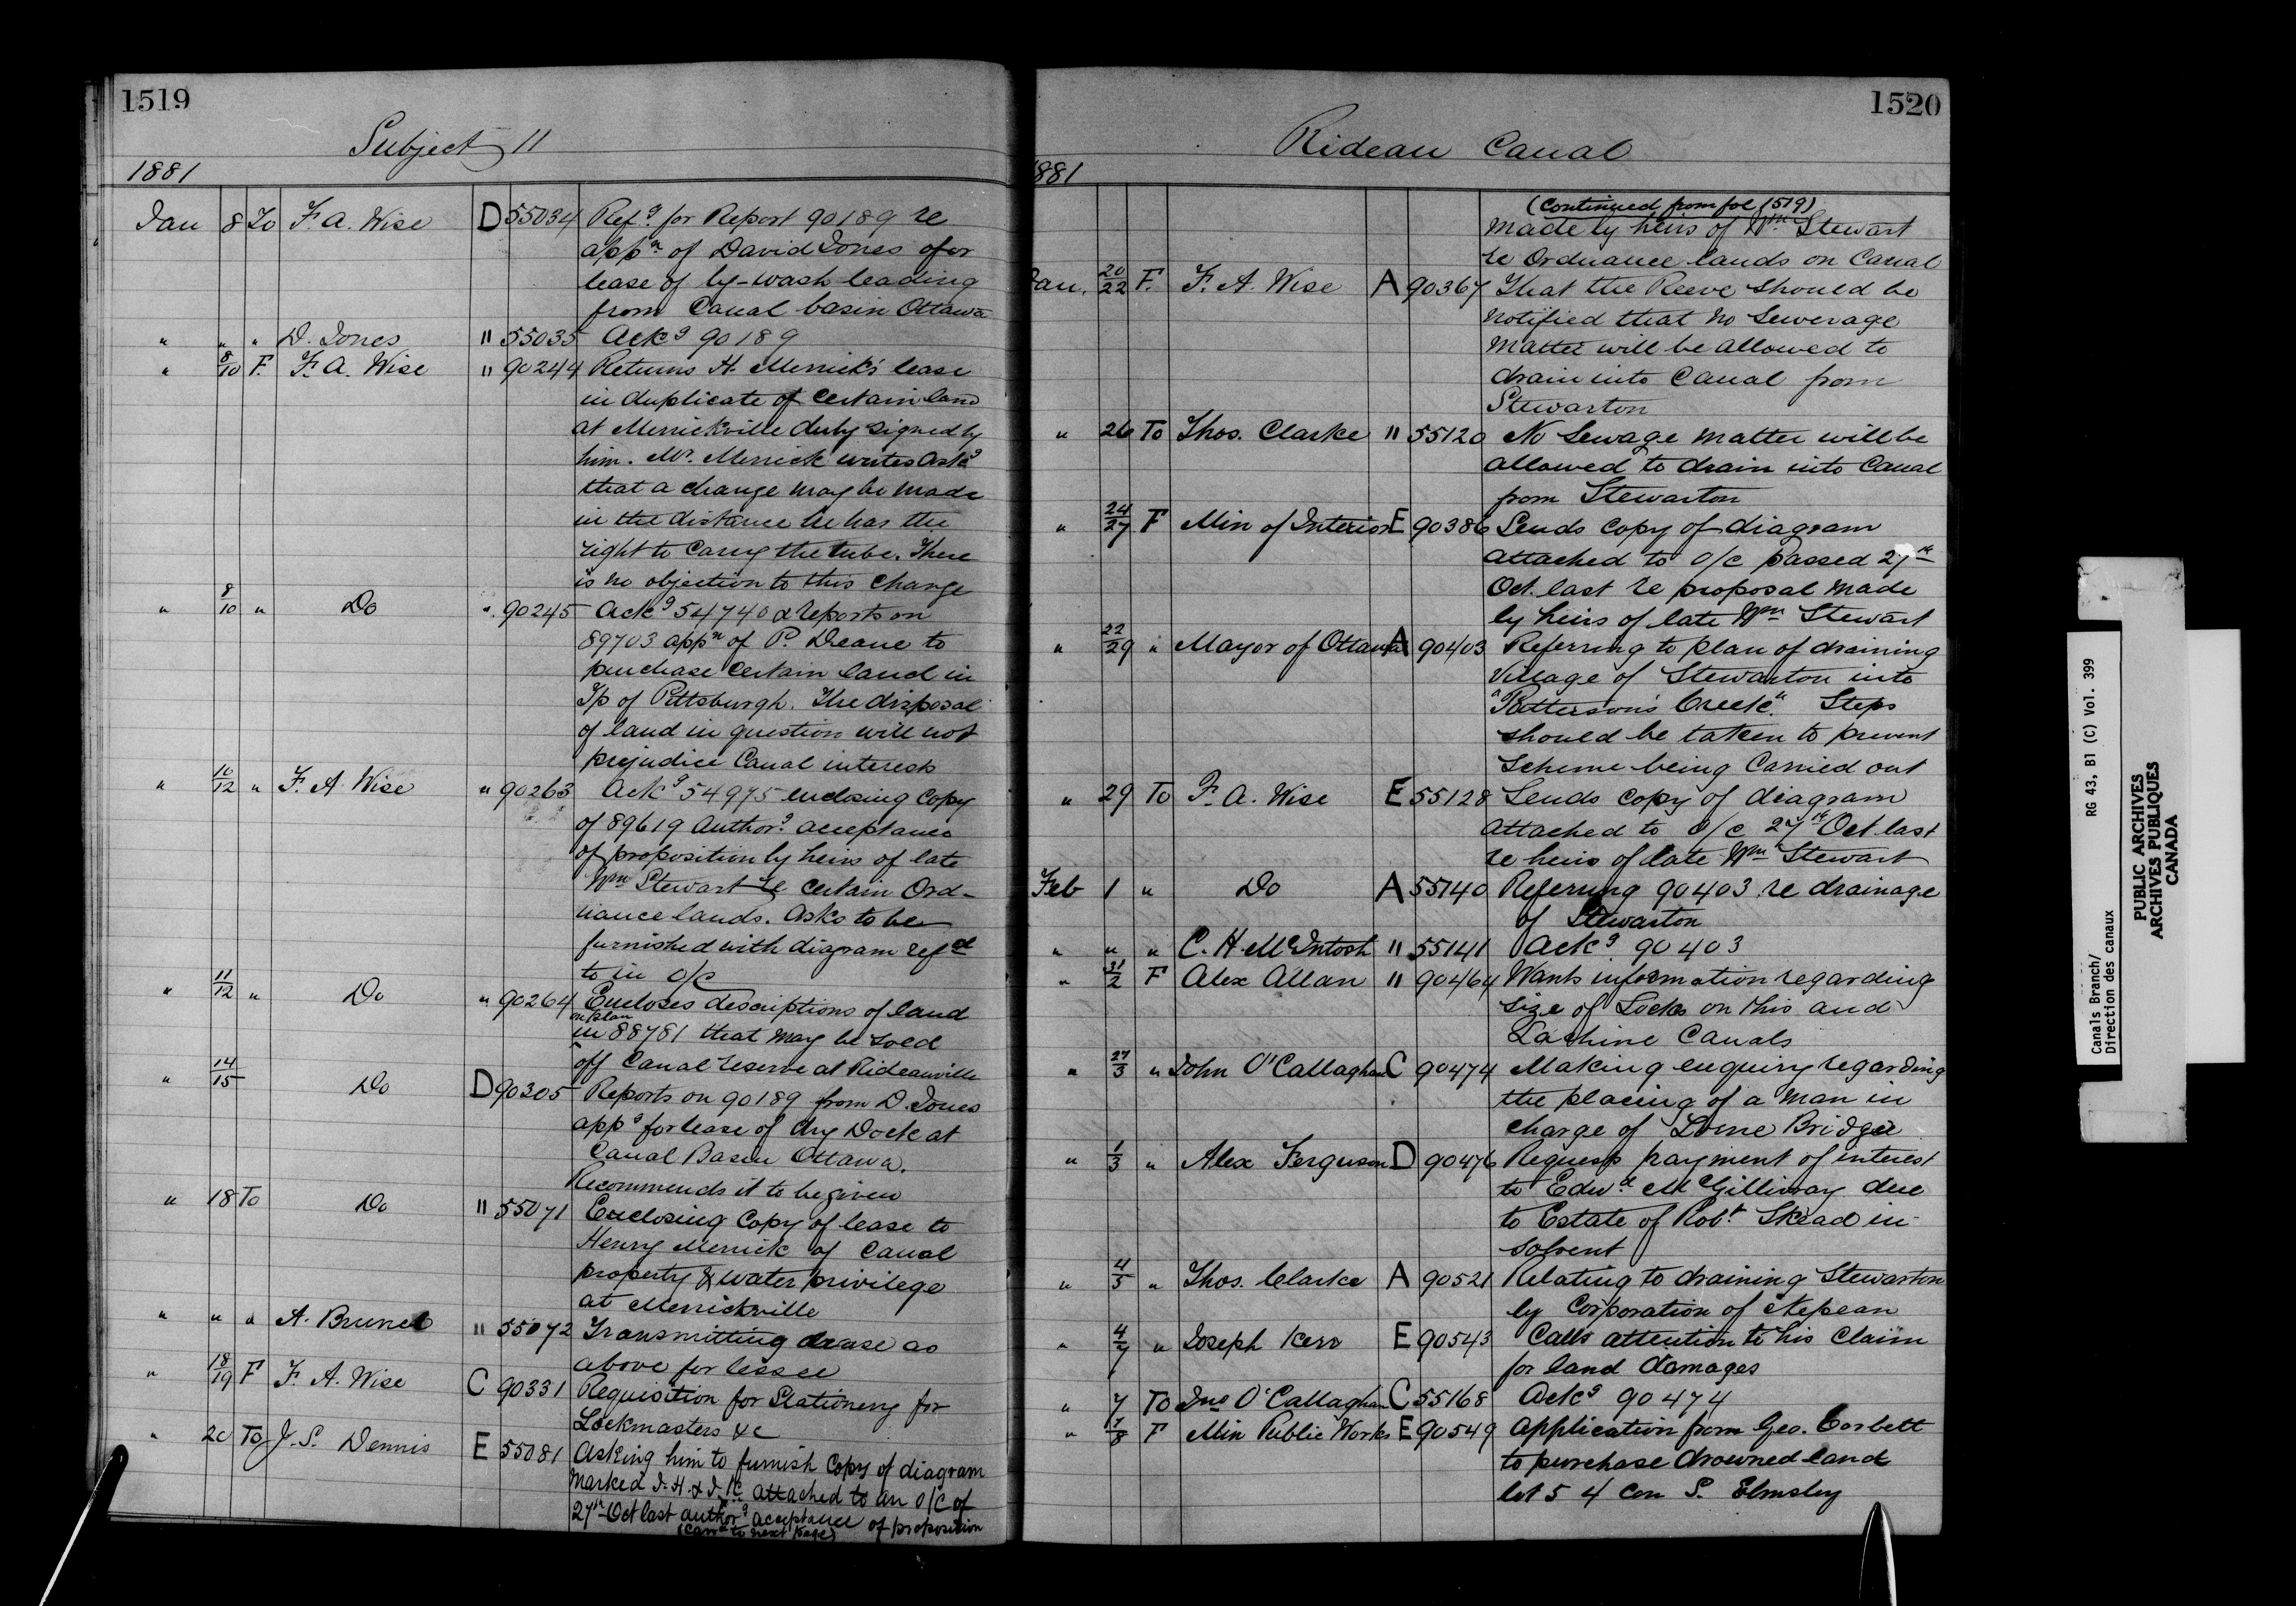 1519
Subject 11
1881
Jan 8 To F. A. Wise D 55034 Refg for Report 90189 re
appn of David Jones for
lease of by-wash leading
from Canal basin Ottawa
" " " D. Jones " 55035 Ackg 90189
" 8/10 F. F. A. Wise " 90244 Returns H. Merrick's lease
in duplicate of certain land
at Merrickville duly signed by
him. Mr. Merrick writes askg
that a change may be made
in the distance he has the
right to carry the tube. There
is no objection to this change
" 8/10 " Do " 90245 Ackg 54740 & reports on
89703 appn of P. Deane to
purchase certain land in
T/p of Pittsburgh. The disposal
of land in question will not
prejudice Canal interests
" 10/12 " F. A. Wise " 90263 Ackg 54975 enclosing copy
of 89619 Authorg acceptance
of proposition by heirs of late
Wm Stewart re certain Ord-
nance lands. Asks to be
furnished with diagram refed
to in O/C
" 11/12 " Do " 90264 Encloses descriptions of land
on plan
in 88781 that may be sold
off Canal reserve at Rideauville
" 14/15 Do D 90305 Reports on 90189 from D. Jones
appg for lease of dry Dock at
Canal Basin Ottawa.
Recommends it to be given
" 18 To Do " 55071 Enclosing copy of lease to
Henry Merrick of Canal
property & water privilege
at Merrickville
" " " A. Brunel " 55072 Transmitting lease as
above for lessee
" 18/19 F F. A. Wise C 90331 Requisition for Stationery for
Lockmasters &c
" 20 To J. S. Dennis E 55081 Asking him to furnish copy of diagram
marked J. H. & J. K. attached to an O/C of
27th Oct last authorg acceptance of proposition
(Carrd to next page)
1520
Rideau Canal
1881
(Continued from fol 1519)
made by heirs of Wm Stewart
re Ordnance lands on Canal
Jan. 20/22 F. F. A. Wise A 90367 That the Reeve should be
notified that no Sewerage
matter will be allowed to
drain into Canal from
Stewarton
" 26 To Thos. Clarke " 55120 No Sewage matter will be
allowed to drain into Canal
from Stewarton
" 24/27 F Min of Interior E 90386 Sends copy of diagram
attached to O/C passed 27th
Oct. last re proposal made
by heirs of late Wm Stewart
" 22/29 " Mayor of Ottawa A 90403 Referring to plan of draining
Village of Stewarton into
"Patterson's Creek". Steps
should be taken to prevent
scheme being carried out
" 29 To F. A. Wise E 55128 Sends copy of diagram
attached to O/C 27th Oct last
re heirs of late Wm Stewart
Feb 1 " Do A 55140 Referring 90403 re drainage
of Stewarton
" " " C. H. McIntosh " 55141 Ackg 90403
" 31/2 F Alex Allan " 90464 Wants information regarding
size of Locks on this and
Lachine Canals
" 27/3 " John O'Callaghan C 90474 Making enquiry regarding
the placing of a man in
charge of Lorne Bridge
" 1/3 " Alex Ferguson D 90476 Requests payment of interest
to Edwd McGillivray due
to Estate of Robt Skead in-
solvent
" 4/5 " Thos. Clarke A 90521 Relating to draining Stewarton
by Corporation of Nepean
" 4/7 " Joseph Kerr E 90543 Calls attention to his claim
for land damages
" 7 To Jno O'Callaghan C 55168 Ackg 90474
" 7/8 F Min Public Works E 90549 Application from Geo. Corbett
to purchase drowned land
lot 5 4 con S. Elmsley
Canals Branch/ RG 43, B1 (C) Vol. 399
Direction des canaux
PUBLIC ARCHIVES
ARCHIVES PUBLIQUES
CANADA